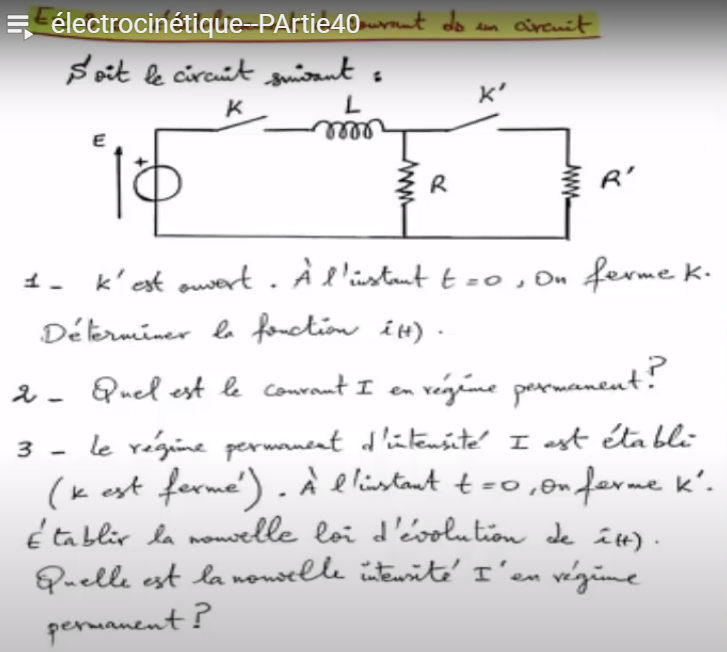 électrocinétique--PArtie40
courant ds un circuit
Soit le circuit suivant :
K L K'
E + R R'
1 - K' est ouvert . À l'instant t = 0 , On ferme K.
Déterminer la fonction i(t) .
2 - Quel est le courant I en régime permanent ?
3 - Le régime permanent d'intensité I est établi
(K est fermé) . À l'instant t = 0 , on ferme K'.
Établir la nouvelle loi d'évolution de i(t) .
Quelle est la nouvelle intensité I' en régime
permanent ?